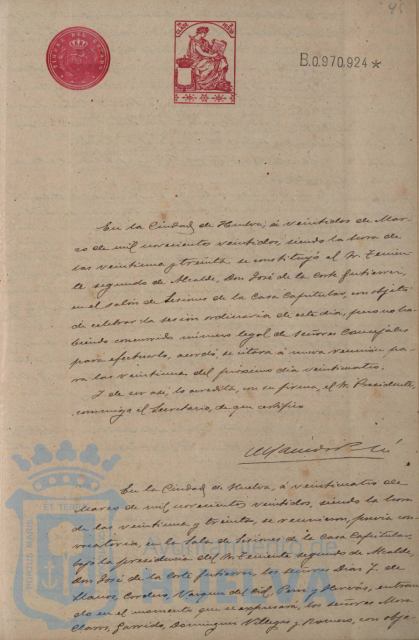 TIMBRE DEL ESTADO
B.0.970.924*
En la Ciudad de Huelva, á veintidos de Mar-
zo de mil novecientos veintidos, siendo la hora de
las veintiuna y treinta se constituyó el Sr. Tenien-
te segundo de Alcalde, Don José de la Corte Gutierrez,
en el salón de Sesiones de la Casa Capitular, con objeto
de celebrar la sesión ordinaria de este día, pero no ha-
biendo concurrido número legal de señores Concejales
para efectuarlo, acordó se citara á nueva reunión pa-
ra las veintiuna del próximo día veintiquatro.
Y de ser así, lo acredita, con su firma, el Sr. Presidente,
conmigo el Secretario, de que certifico
En la Ciudad de Huelva, á veinticuatro de
Marzo de mil novecientos veintidos, siendo la hora
de las veintiuna y treinta, se reunieron, previa con-
vocatoria, en la Sala de Sesiones de la Casa Capitular,
bajo la presidencia del Sr. Teniente segundo de Alcalde,
Don José de la Corte Gutierrez, los señores Díaz F. de
Llanos, Cordero, Vazquez del Cid, y Hervás, entran-
do en el momento que se expresará, los señores Mora
Claros, Garrido, Dominguez Villegas, y Romero, con obje-
PORTUS MARIS
ET TERRAE
HUELVA